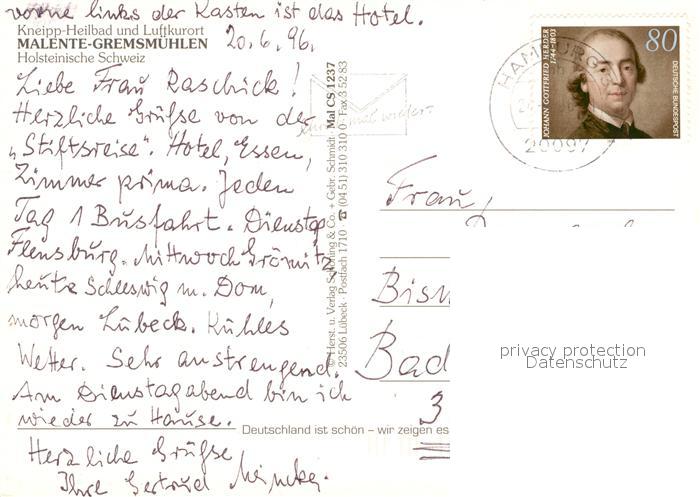 vorne links der Kasten ist das Hotel.
Kneipp-Heilbad und Luftkurort
MALENTE-GREMSMÜHLEN
Holsteinische Schweiz
20.6.96.
Liebe Frau Raschick!
Herzliche Grüße von der
„Stiftsreise". Hotel, Essen,
Zimmer prima. Jeden
Tag 1 Busfahrt. Dienstag
Flensburg. Mittwoch Grömitz
heute Schleswig m. Dom,
morgen Lübeck. Kühles
Wetter. Sehr anstrengend.
Am Dienstagabend bin ich
wieder zu Hause.
Herzliche Grüße
Ihre Gertrud
© Herst. u. Verlag Schöning & Co. + Gebr. Schmidt · Mal CS 1237
23506 Lübeck · Postfach 1710 · ☎ (04 51) 310 310 · Fax 3 52 83
mal wieder.
Deutschland ist schön – wir zeigen es
HAMBURG
20097
80
JOHANN GOTTFRIED HERDER
1744-1803
DEUTSCHE BUNDESPOST
Frau
Bism
Bad
3
privacy protection
Datenschutz